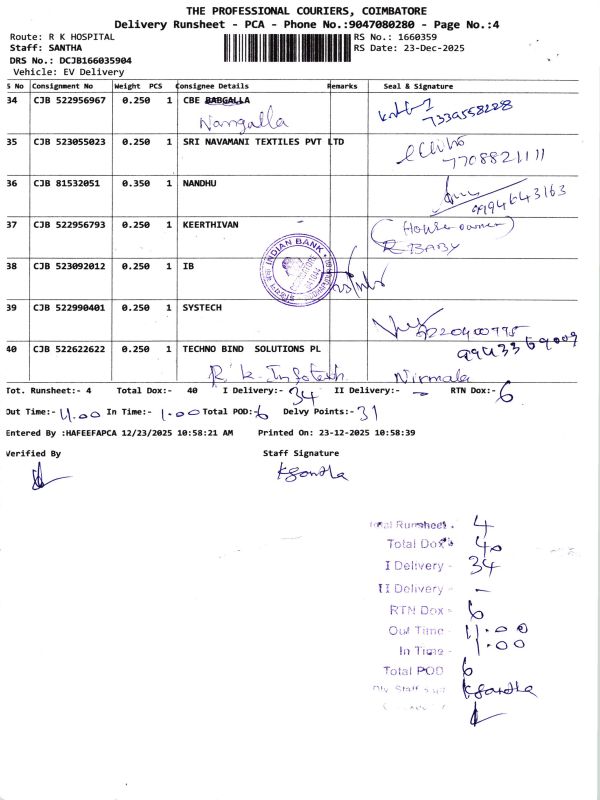 THE PROFESSIONAL COURIERS, COIMBATORE
Delivery Runsheet - PCA - Phone No.:9047080280 - Page No.:4
Route: R K HOSPITAL RS No.: 1660359
Staff: SANTHA RS Date: 23-Dec-2025
DRS No.: DCJB166035904
Vehicle: EV Delivery
S No Consignment No Weight PCS Consignee Details Remarks Seal & Signature
34 CJB 522956967 0.250 1 CBE BABGALLA
Nangalla 7339558228
35 CJB 523055023 0.250 1 SRI NAVAMANI TEXTILES PVT LTD
7708821111
36 CJB 81532051 0.350 1 NANDHU
9994643163
37 CJB 522956793 0.250 1 KEERTHIVAN (House owner)
R BABY
INDIAN BANK
38 CJB 523092012 0.250 1 IB
39 CJB 522990401 0.250 1 SYSTECH
40 CJB 522622622 0.250 1 TECHNO BIND SOLUTIONS PL
R K Infotech Nirmala
Tot. Runsheet:- 4 Total Dox:- 40 I Delivery:- 34 II Delivery:- - RTN Dox:- 6
Out Time:- 11.00 In Time:- 1.00 Total POD:- 6 Delvy Points:- 31
Entered By :HAFEEFAPCA 12/23/2025 10:58:21 AM Printed On: 23-12-2025 10:58:39
Verified By Staff Signature
KSantha
Total Runsheet - 4
Total Dox - 40
I Delivery - 34
II Delivery - -
RTN Dox - 6
Out Time - 11.00
In Time - 1.00
Total POD 6
KSantha